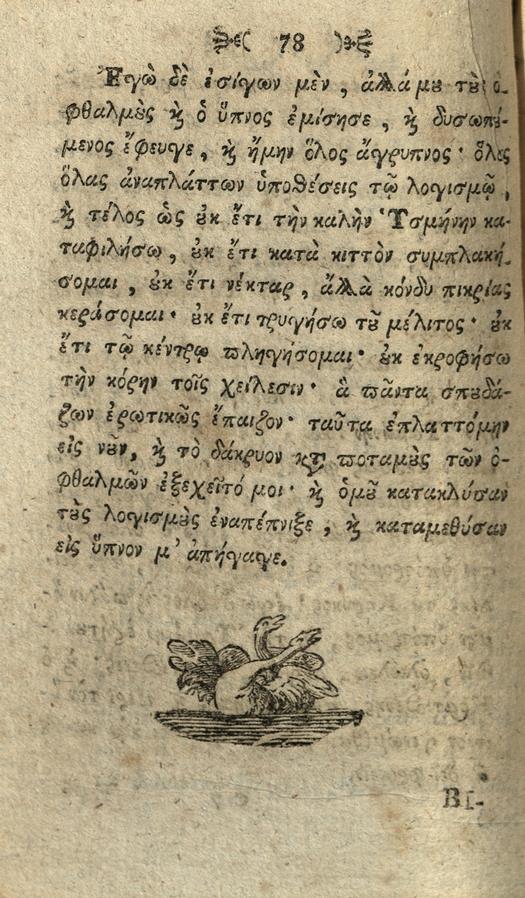 78
Ἐγὼ δὲ ἐσίγων μὲν, ἀλλά μȣ τȣ̀ς ὀ-
φθαλμȣ̀ς ϗ̀ ὁ ὕπνος ἐμίσησε, ϗ̀ δυσωπȣ́-
μενος ἔφευγε, ϗ̀ ἤμην ὅλος ἄγρυπνος· ὅλας
ὅλας ἀναπλάττων ὑποθέσεις τῷ λογισμῷ,
ϗ̀ τέλος ὡς ȣ̓κ ἔτι τὴν καλὴν Ὑσμήνην κα-
ταφιλήσω, ȣ̓κ ἔτι κατὰ κιττὸν συμπλακή-
σομαι, ȣ̓κ ἔτι νέκταρ, ἀλλὰ κόνδυ πικρίας
κεράσομαι· ȣ̓κ ἔτι τρυγήσω τȣ͂ μέλιτος· ȣ̓κ
ἔτι τῷ κέντρῳ πληγήσομαι· ȣ̓κ ἐκροφήσω
τὴν κόρην τοῖς χείλεσιν· ἃ πάντα σπȣδά-
ζων ἐρωτικῶς ἔπαιζον· ταῦτα ἐπλαττόμην
εἰς νȣ͂ν, ϗ̀ τὸ δάκρυον κτ̀ ποταμȣ̀ς τῶν ὀ-
φθαλμῶν ἐξεχεῖτό μοι· ϗ̀ ὁμȣ͂ κατακλύσαν
τȣ̀ς λογισμȣ̀ς ἐναπέπνιξε, ϗ̀ καταμεθύσαν
εἰς ὕπνον μ' ἀπήγαγε.
ΒΙ-